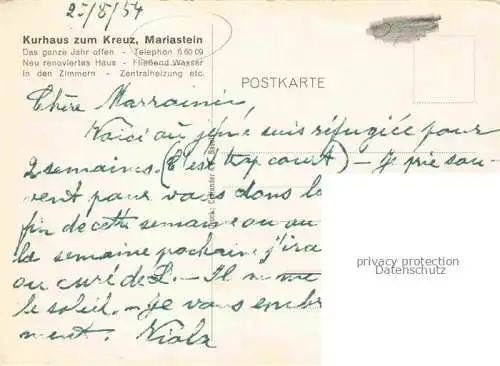 25/8/54
Kurhaus zum Kreuz, Mariastein
Das ganze Jahr offen - Telephon 6 60 09
Neu renoviertes Haus - Fließend Wasser
in den Zimmern - Zentralheizung etc.
POSTKARTE
Chère Marraine,
Voici où je me suis réfugiée pour
2 semaines. (C'est trop court) - Je prie sou-
vent pour vous dans la
fin de cette semaine ou au
la semaine prochaine j'irai
au curé de L. - Il
le soleil. - Je vous embr
ment. Viola
privacy protection
Datenschutz